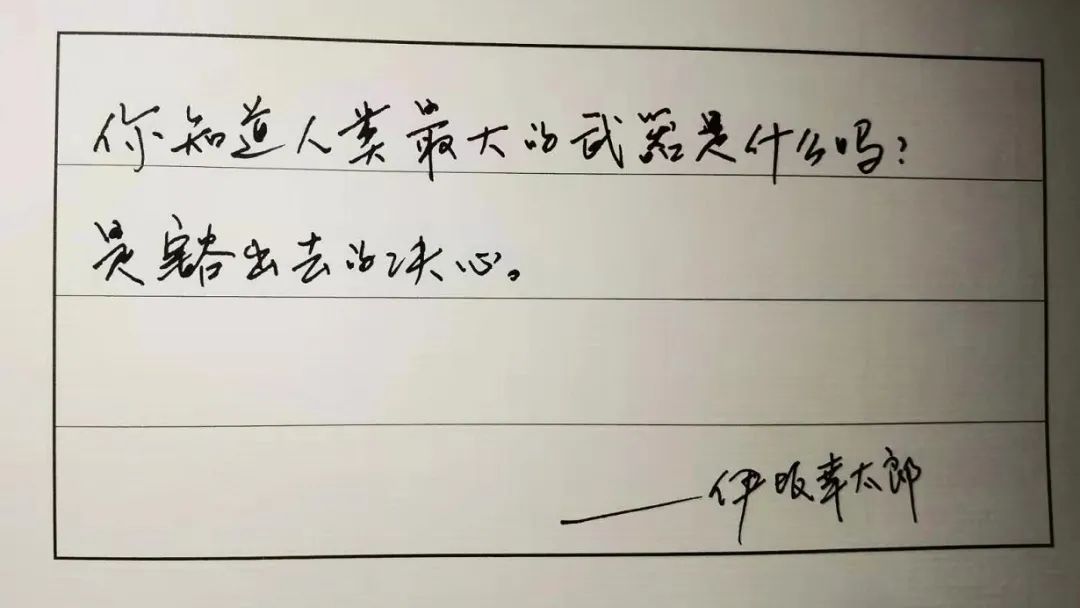 你知道人类最大的武器是什么吗?
是豁出去的决心。
——伊坂幸太郎